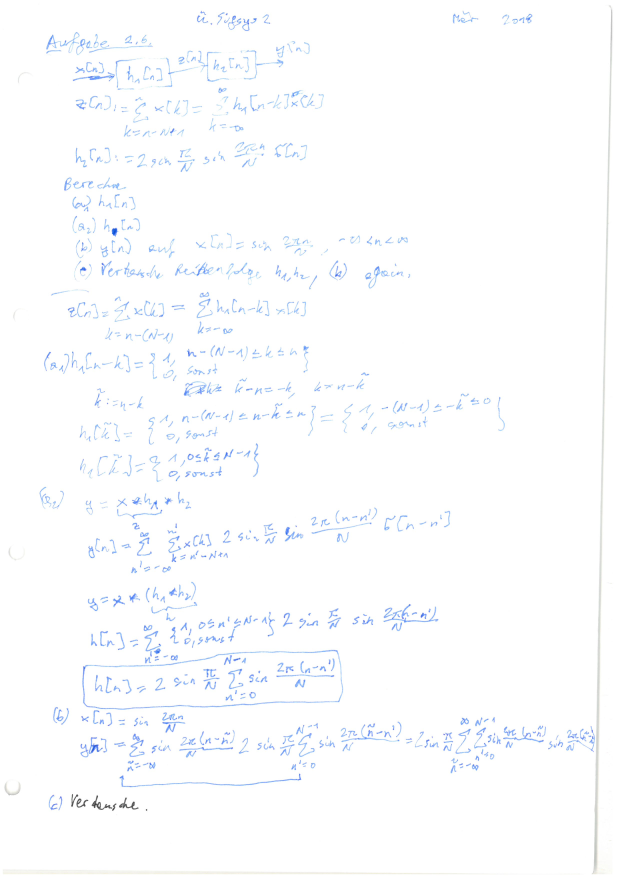 ü. Sigsys 2 Mär 2018
Aufgabe 2.6.
x[n] h₁[n] z[n] h₂[n] y[n]
z[n] := Σ_{k=n-N+1}^{n} x[k] = Σ_{k=-∞}^{∞} h₁[n-k] x[k]
h₂[n] := 2 sin π/N sin 2πn/N σ[n]
Berechne
(a₁) h₁[n]
(a₂) h[n]
(b) y[n] auf x[n] = sin 2πn/N, -∞<n<∞
(c) Vertausche Reihenfolge h₁,h₂, (b) again.
z[n] = Σ_{k=n-(N-1)}^{n} x[k] = Σ_{k=-∞}^{∞} h₁[n-k] x[k]
(a₁) h₁[n-k] = {1, n-(N-1) ≤ k ≤ n; 0, sonst}
k̃ := n-k k̃-n = -k, k = n-k̃
h₁[k̃] = {1, n-(N-1) ≤ n-k̃ ≤ n; 0, sonst} = {1, -(N-1) ≤ -k̃ ≤ 0; 0, sonst}
h₁[k̃] = {1, 0≤k̃≤N-1; 0, sonst}
(a₂) y = x * h₁ * h₂
z
y[n] = Σ_{n'=-∞}^{∞} Σ_{k=n'-N+1}^{n'} x[k] 2 sin π/N sin 2π(n-n')/N σ[n-n']
y = x * (h₁ * h₂)
h
h[n] = Σ_{n'=-∞}^{∞} {1, 0≤n'≤N-1; 0, sonst} 2 sin π/N sin 2π(n-n')/N
h[n] = 2 sin π/N Σ_{n'=0}^{N-1} sin 2π(n-n')/N
(b) x[n] = sin 2πn/N
y[n] = Σ_{ñ=-∞}^{∞} sin 2π(n-ñ)/N 2 sin π/N Σ_{n'=0}^{N-1} sin 2π(ñ-n')/N = 2 sin π/N Σ_{ñ=-∞}^{∞} Σ_{n'=0}^{N-1} sin 2π(n-ñ)/N sin 2π(ñ-n')/N
(c) Vertausche.